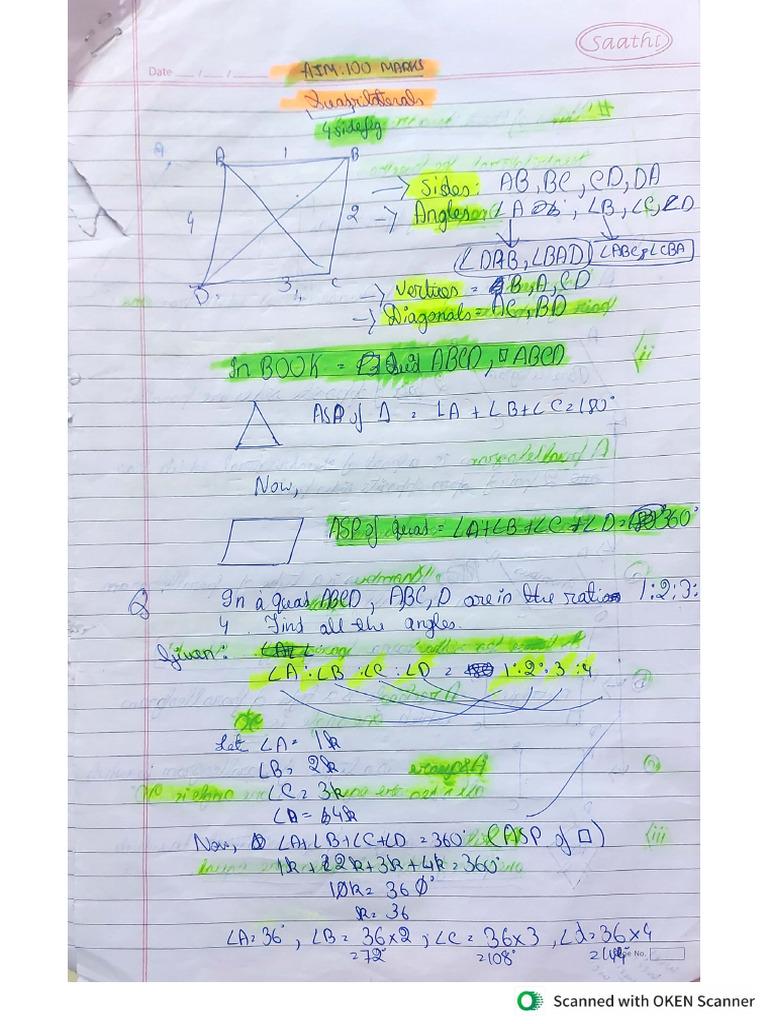 Saathi
Date __/__/__
AIM:100 MARKS
Quadrilaterals
4 side fig
A 1 B
4 2
D 3 C
4
→ Sides: AB, BC, CD, DA
→ Angles ∠A, ∠B, ∠C, ∠D
(∠DAB, ∠BAD) ∠ABC, ∠CBA
→ Vertices = B, A, C D
→ Diagonals = AC, BD
In BOOK = Quad ABCD, □ ABCD
ASP of Δ = ∠A + ∠B + ∠C = 180°
Now,
ASP of quad = ∠A+∠B+∠C+∠D = 360°
Q In a quad ABCD, ABC, D are in the ratio 1:2:3:
4. Find all the angles.
Given:
∠A : ∠B : ∠C : ∠D = 1:2:3:4
Let ∠A = 1k
∠B = 2k
∠C = 3k
∠D = 4k
Now, ∠A+∠B+∠C+∠D = 360° (ASP of □)
1k + 2k + 3k + 4k = 360°
10k = 360°
k = 36
∠A = 36°, ∠B = 36×2, ∠C = 36×3, ∠d = 36×4
=72° =108° =144°
Page No.
Scanned with OKEN Scanner